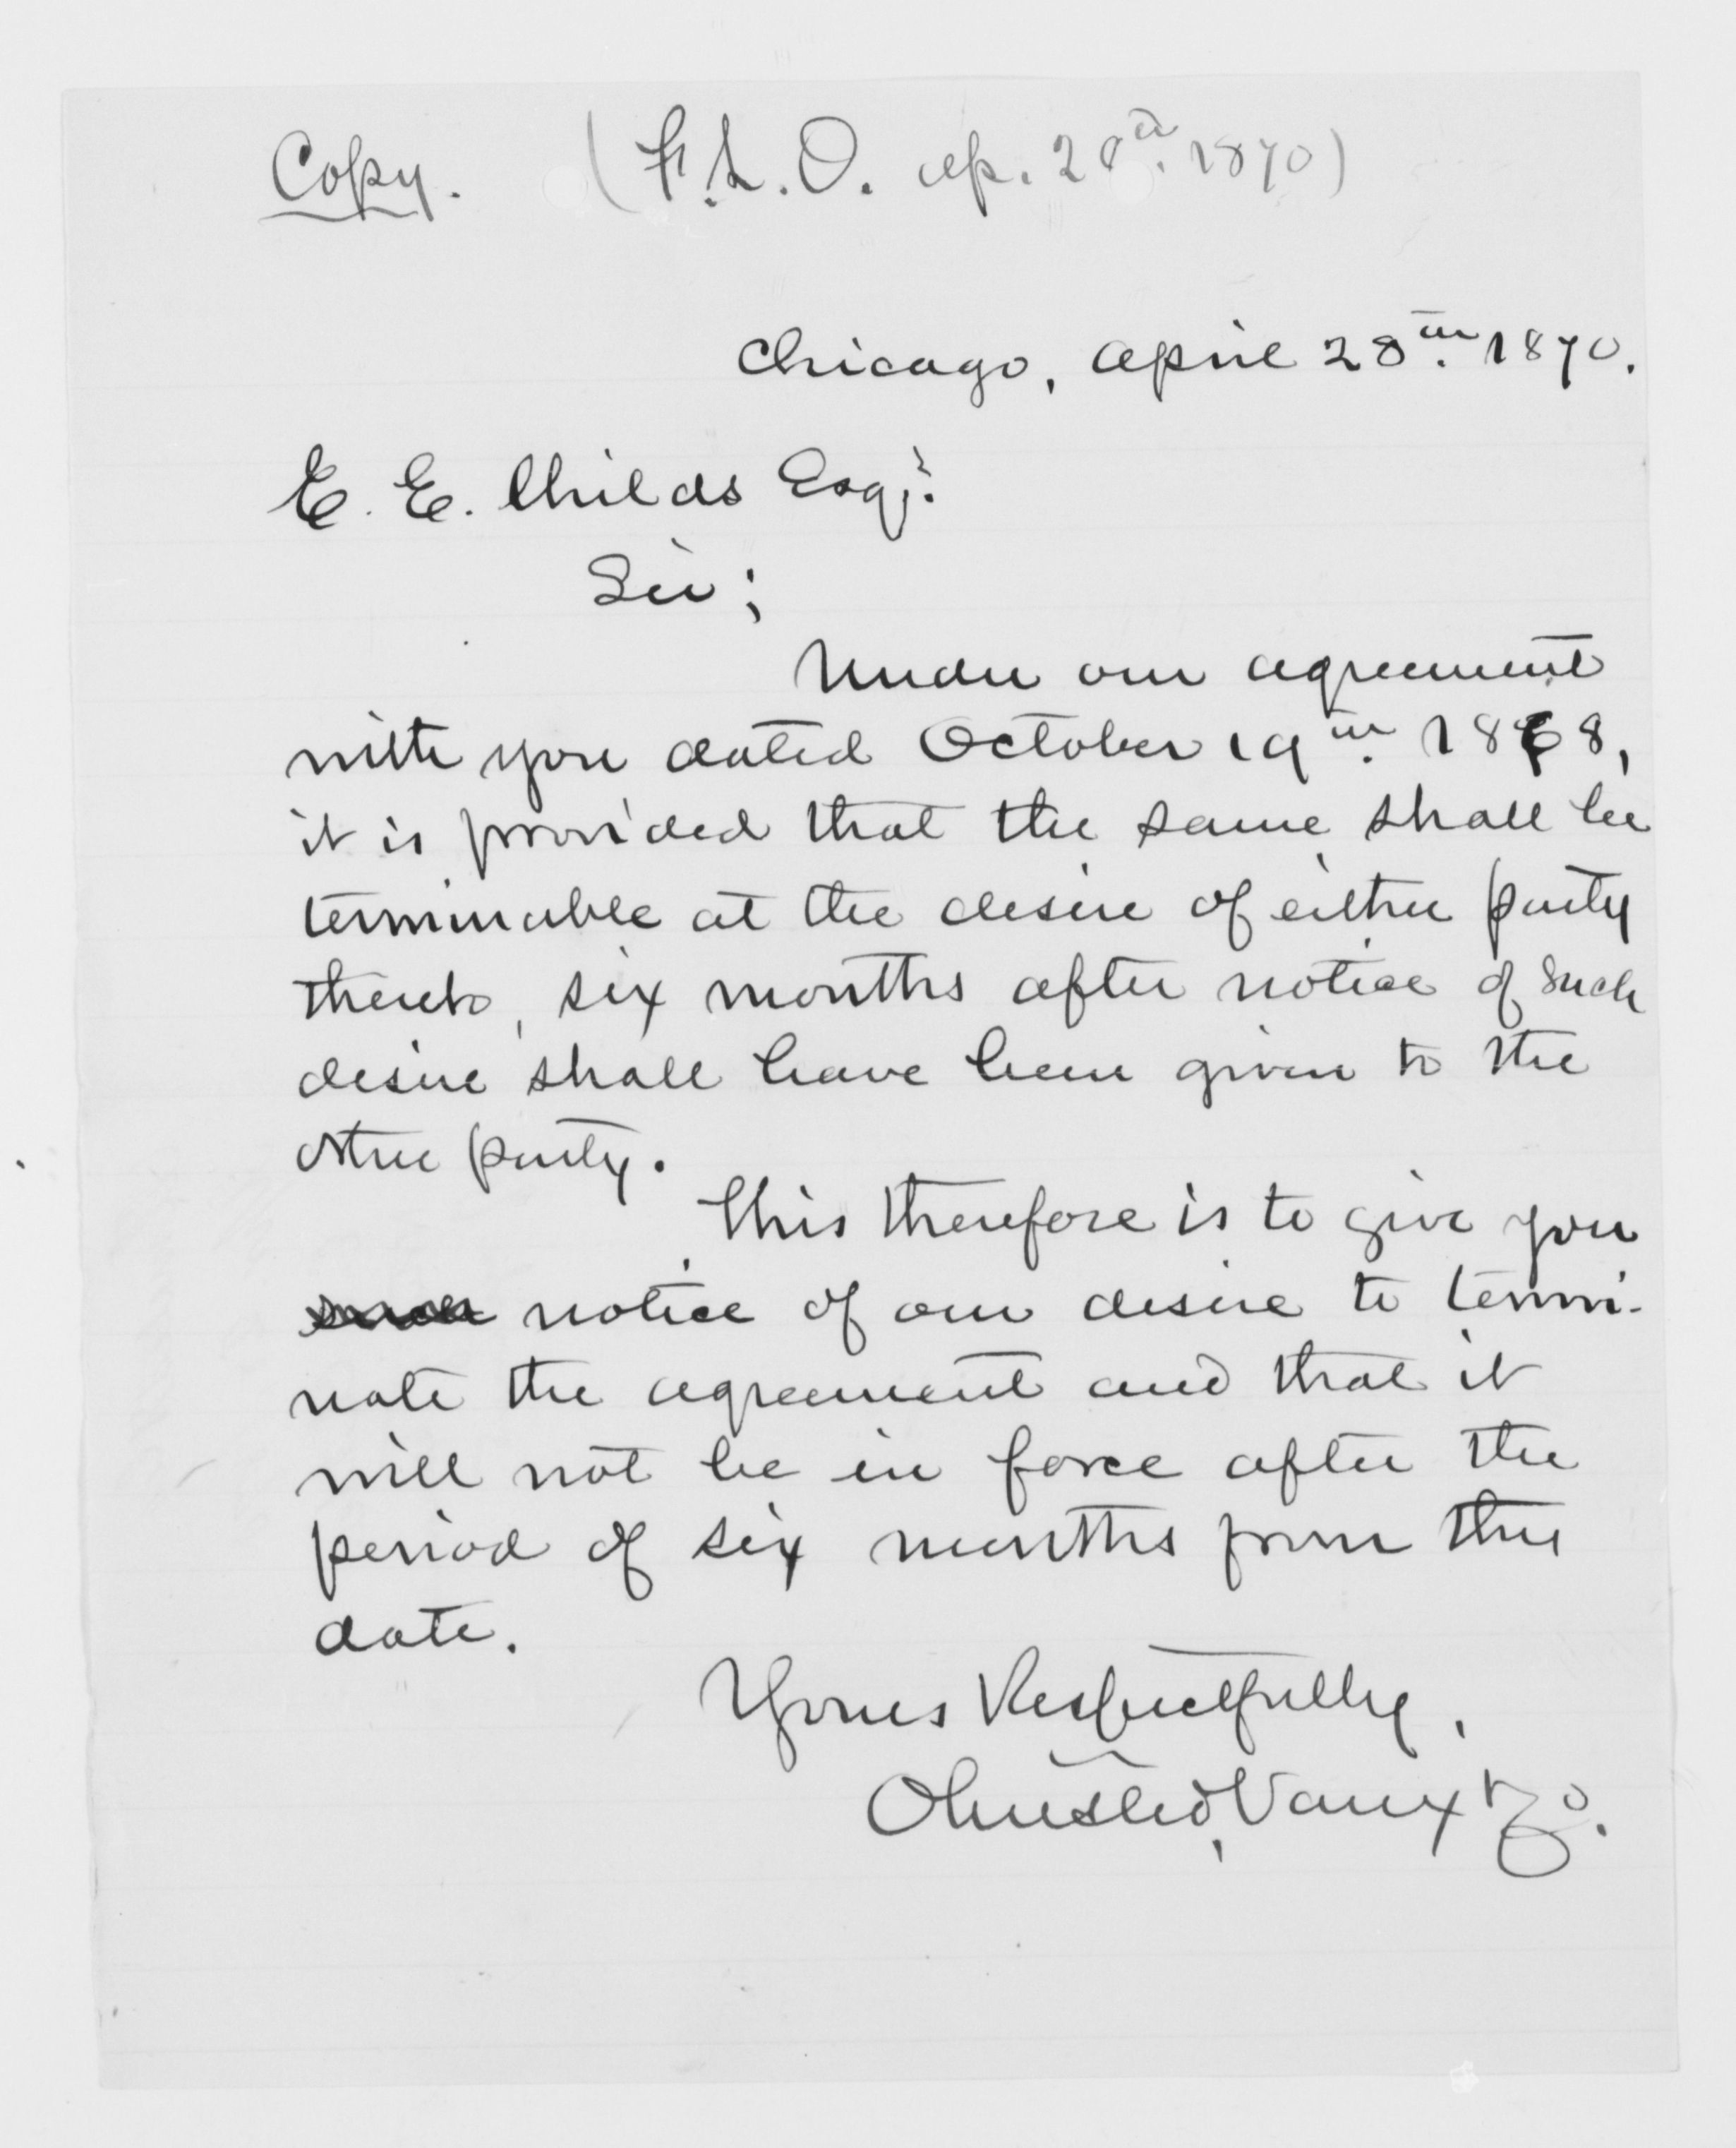 Copy. (F. L. O. Ap. 28th. 1870)
Chicago, April 28th. 1870.
E. E. Childs Esqr.
Sir;
Under our agreement
with you dated October 19th. 1868,
it is provided that the same shall be
terminable at the desire of either party
thereto, six months after notice of such
desire shall have been given to the
other party.
This therefore is to give you
notice of our desire to termi-
nate the agreement and that it
will not be in force after the
period of six months from this
date.
Yours Respectfully,
Olmsted, Vaux & Co.